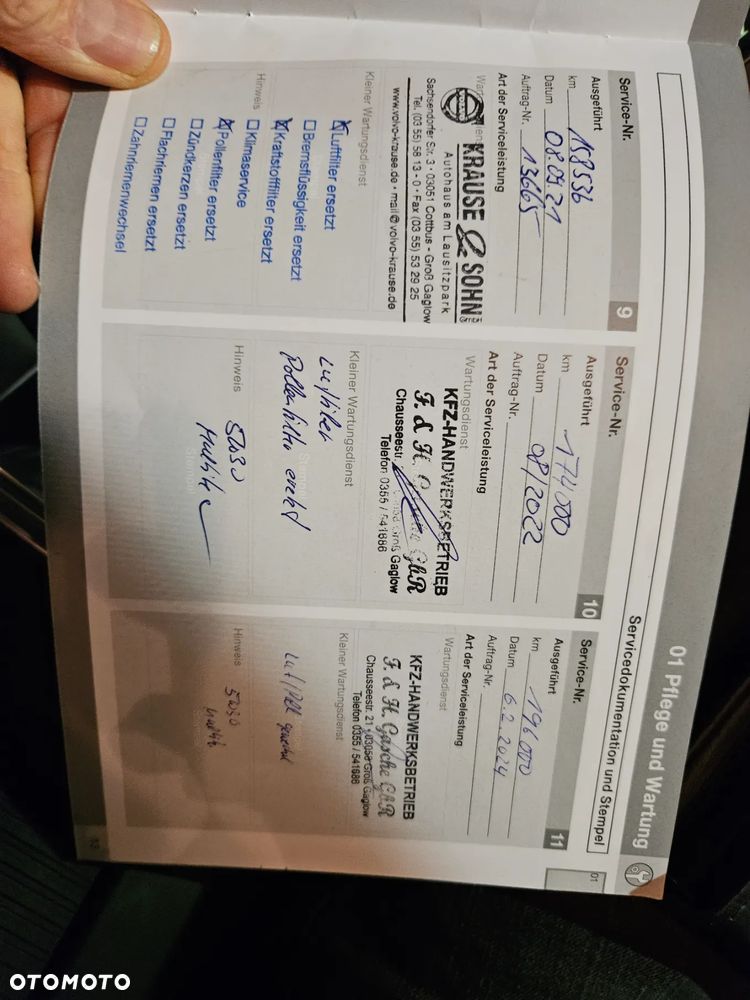 01 Pflege und Wartung
Servicedokumentation und Stempel
01
Service-Nr.
9
Ausgeführt
km 158536
Datum 08.09.21
Auftrag-Nr. 13665
Art der Serviceleistung
KRAUSE & SOHN
Autohaus am Lausitzpark
Sachsendorfer Str. 3 · 03051 Cottbus - Groß Gaglow
Tel. (03 55) 58 13 - 0 · Fax (03 55) 53 29 25
www.volvo-krause.de · mail@volvo-krause.de
Kleiner Wartungsdienst
☒ Luftfilter ersetzt
☐ Bremsflüssigkeit ersetzt
☒ Kraftstofffilter ersetzt
Hinweis
☐ Klimaservice
☒ Pollenfilter ersetzt
☐ Zündkerzen ersetzt
☐ Flachriemen ersetzt
☐ Zahnriemenwechsel
Service-Nr.
10
Ausgeführt
km 174000
Datum 08/2022
Auftrag-Nr.
Art der Serviceleistung
Wartungsdienst
KFZ-HANDWERKSBETRIEB
F. & H. GbR
Chausseestr. Groß Gaglow
Telefon 0355 / 541686
Kleiner Wartungsdienst
Luftfilter
Pollenfilter
Hinweis
5W30
Service-Nr.
11
Ausgeführt
km 196000
Datum 6.2.2024
Auftrag-Nr.
Art der Serviceleistung
Wartungsdienst
KFZ-HANDWERKSBETRIEB
F. & H. Gasche GbR
Chausseestr. 21, 03058 Groß Gaglow
Telefon 0355 / 541686
Kleiner Wartungsdienst
Hinweis
5W30
OTOMOTO